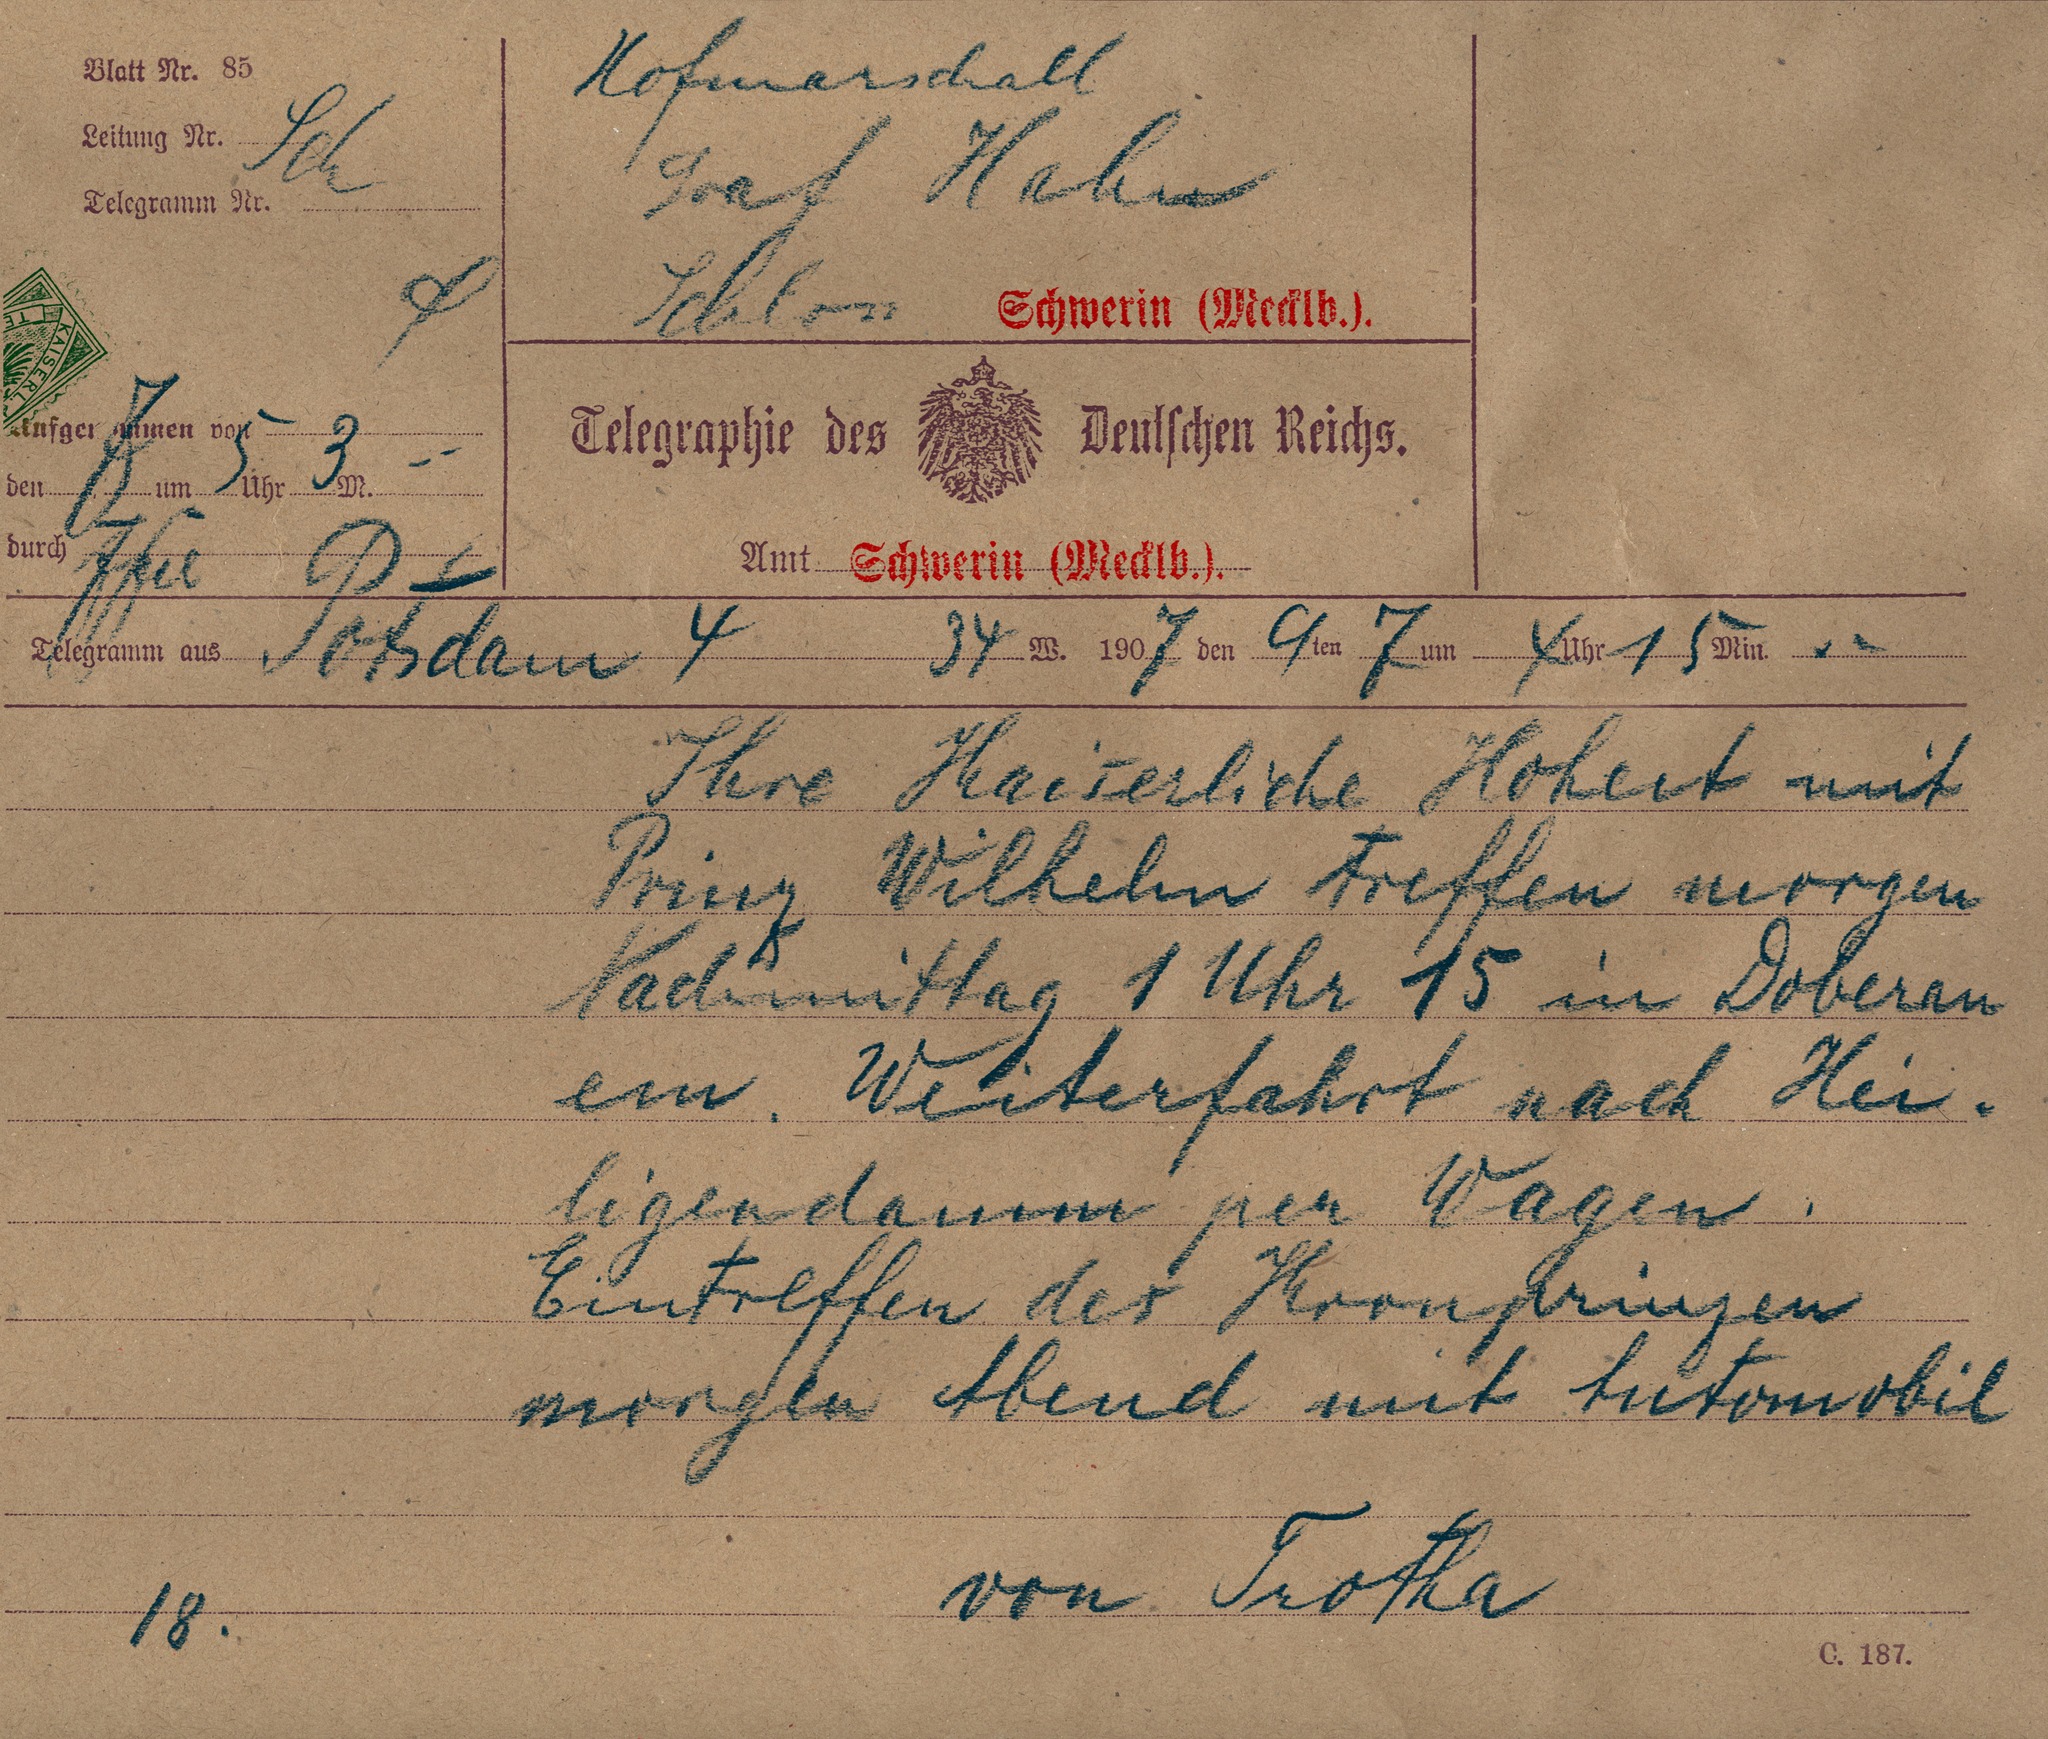 Blatt Nr. 85
Leitung Nr. Sch
Telegramm Nr.
Hofmarschall
Graf Hahn
Schloss Schwerin (Mecklb.).
KAISERL
TE
Aufgenommen von
den um 5 Uhr 3 M.
durch
Telegraphie des Deutschen Reichs.
Amt Schwerin (Mecklb.).
Telegramm aus Potsdam 4 34 W. 1907 den 9ten 7 um 4 Uhr 15 Min.
Ihre Kaiserliche Hoheit mit
Prinz Wilhelm treffen morgen
Nachmittag 1 Uhr 15 in Doberan
ein. Weiterfahrt nach Hei-
ligendamm per Wagen.
Eintreffen des Kronprinzen
morgen Abend mit Automobil
von Trotha
18.
C. 187.